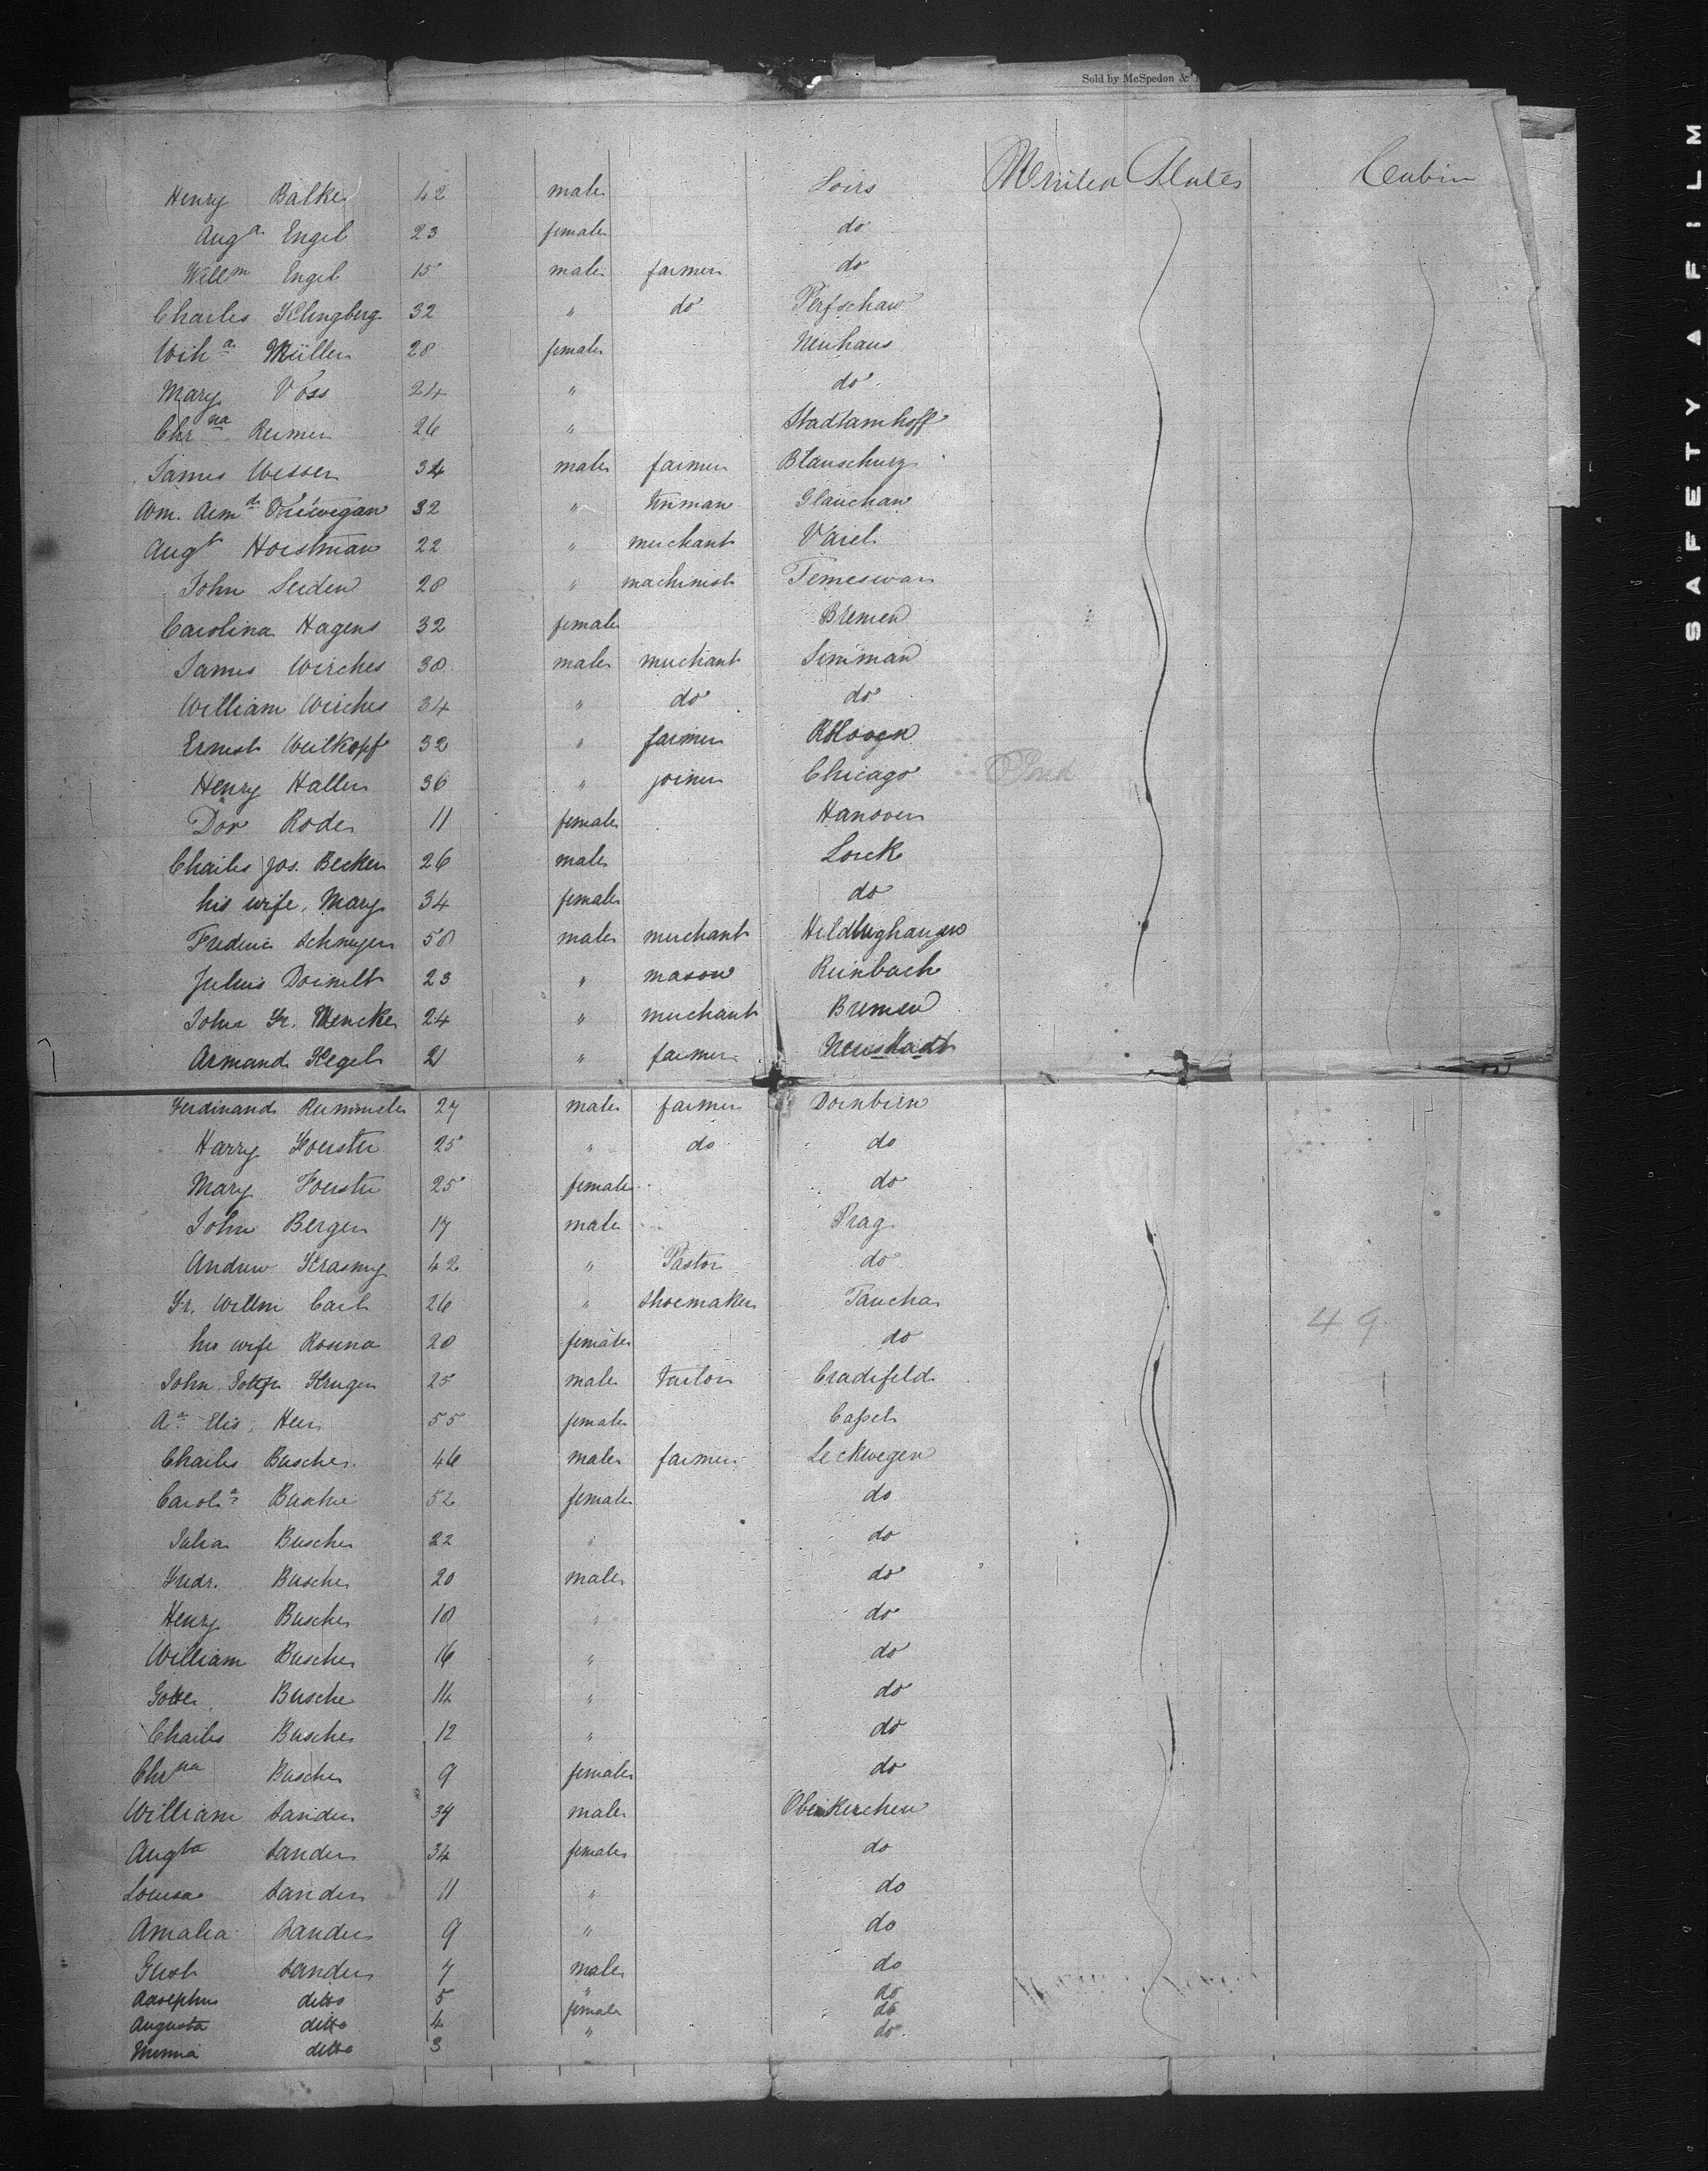 Sold by McSpedon &
United States Cabin
Henry Balke 42 male Loirs
Aug a Engel 23 female do
Will m Engel 15 male farmer do
Charles Klingberg 32 " do Perfschaw
Wilh a Müller 28 female Neuhaus
Mary Voss 24 " do
Chr na Reimer 26 " Stadtamhoff
James Wesser 34 male farmer Blauschurg
Wm. Arm d 32 " tinman Glauchau
Aug t Horstman 22 " merchant Varel
John Seiden 28 " machinist Temeswar
Carolina Hagens 32 female Bremen
James Wirches 38 male merchant Simman
William Wirches 34 " do do
Ernest Weilkopf 32 " farmer
Henry Haller 36 " joiner Chicago
Dor Rode 11 female Hanover
Charles Jos. Becker 26 male Lorck
his wife, Mary 34 female do
Frederic Schmeyer 58 male merchant Hildburghausen
Julius Doinelt 23 " mason Reinbach
John Fr. Mencke 24 " merchant Bremen
Armand Kegel 21 " farmer Neustadt
Ferdinand Rummele 27 male farmer Dornbirn
Harry Foerster 25 " do do
Mary Foerster 25 female do
John Berger 17 male Prag
Andrew Krasny 42 " Pastor do
Fr. Willm Carl 26 " shoemaker Taucha
49
his wife Rosina 20 female do
John Gottfr Kruger 25 male tailor Cradefeld
A a Elis. Heer 55 female Cassel
Charles Busche 46 male farmer Leckwegen
Carol a Busche 52 female do
Julia Busche 22 " do
Fredr. Busche 20 male do
Henry Busche 18 " do
William Busche 16 " do
Busche 14 " do
Charles Busche 12 " do
Chr na Busche 9 female do
William Sander 37 male Obernkirchen
Aug ta Sander 34 female do
Louisa Sander 11 " do
Amalia Sander 9 " do
Gust Sander 7 male do
Adolphus ditto 5 " do
Augusta ditto 4 female do
Minna ditto 3 " do